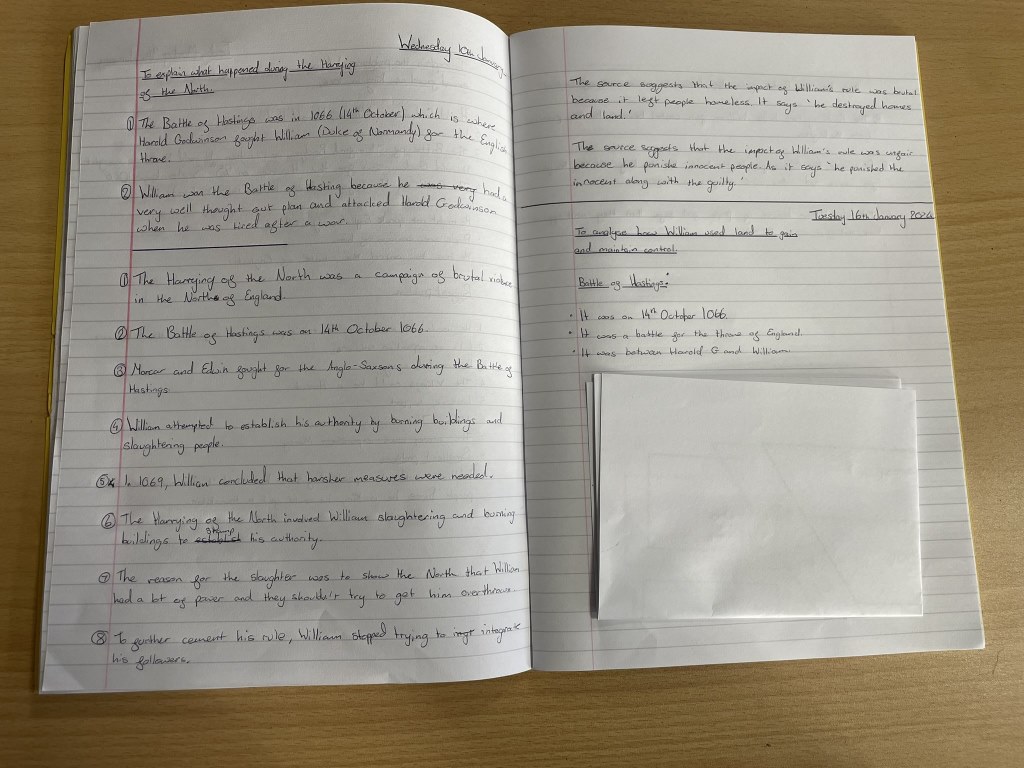 Wednesday 10th January
To explain what happened during the Harrying
of the North.
① The Battle of Hastings was in 1066 (14th October) which is where
Harold Godwinson fought William (Duke of Normandy) for the English
throne.
② William won the Battle of Hasting because he was very had a
very well thought out plan and attacked Harold Godwinson
when he was tired after a war.
① The Harrying of the North was a campaign of brutal violence
in the North of England.
② The Battle of Hastings was on 14th October 1066.
③ Morcar and Edwin fought for the Anglo-Saxons during the Battle of
Hastings
④ William attempted to establish his authority by burning buildings and
slaughtering people.
⑤ In 1069, William concluded that harsher measures were needed.
⑥ The Harrying of the North involved William slaughtering and burning
buildings to his authority.
⑦ The reason for the slaughter was to show the North that William
had a lot of power and they shouldn't try to get him overthrown.
⑧ To further cement his rule, William stopped trying to integrate
his followers.
The source suggests that the impact of William's rule was brutal
because it left people homeless. It says 'he destroyed homes
and land.'
The source suggests that the impact of William's rule was unfair
because he punishe innocent people. As it says 'he punished the
innocent along with the guilty.'
Tuesday 16th January 2024
To analyse how William used land to gain
and maintain control.
Battle of Hastings:
• It was on 14th October 1066.
• It was a battle for the throne of England.
• It was between Harold G and William